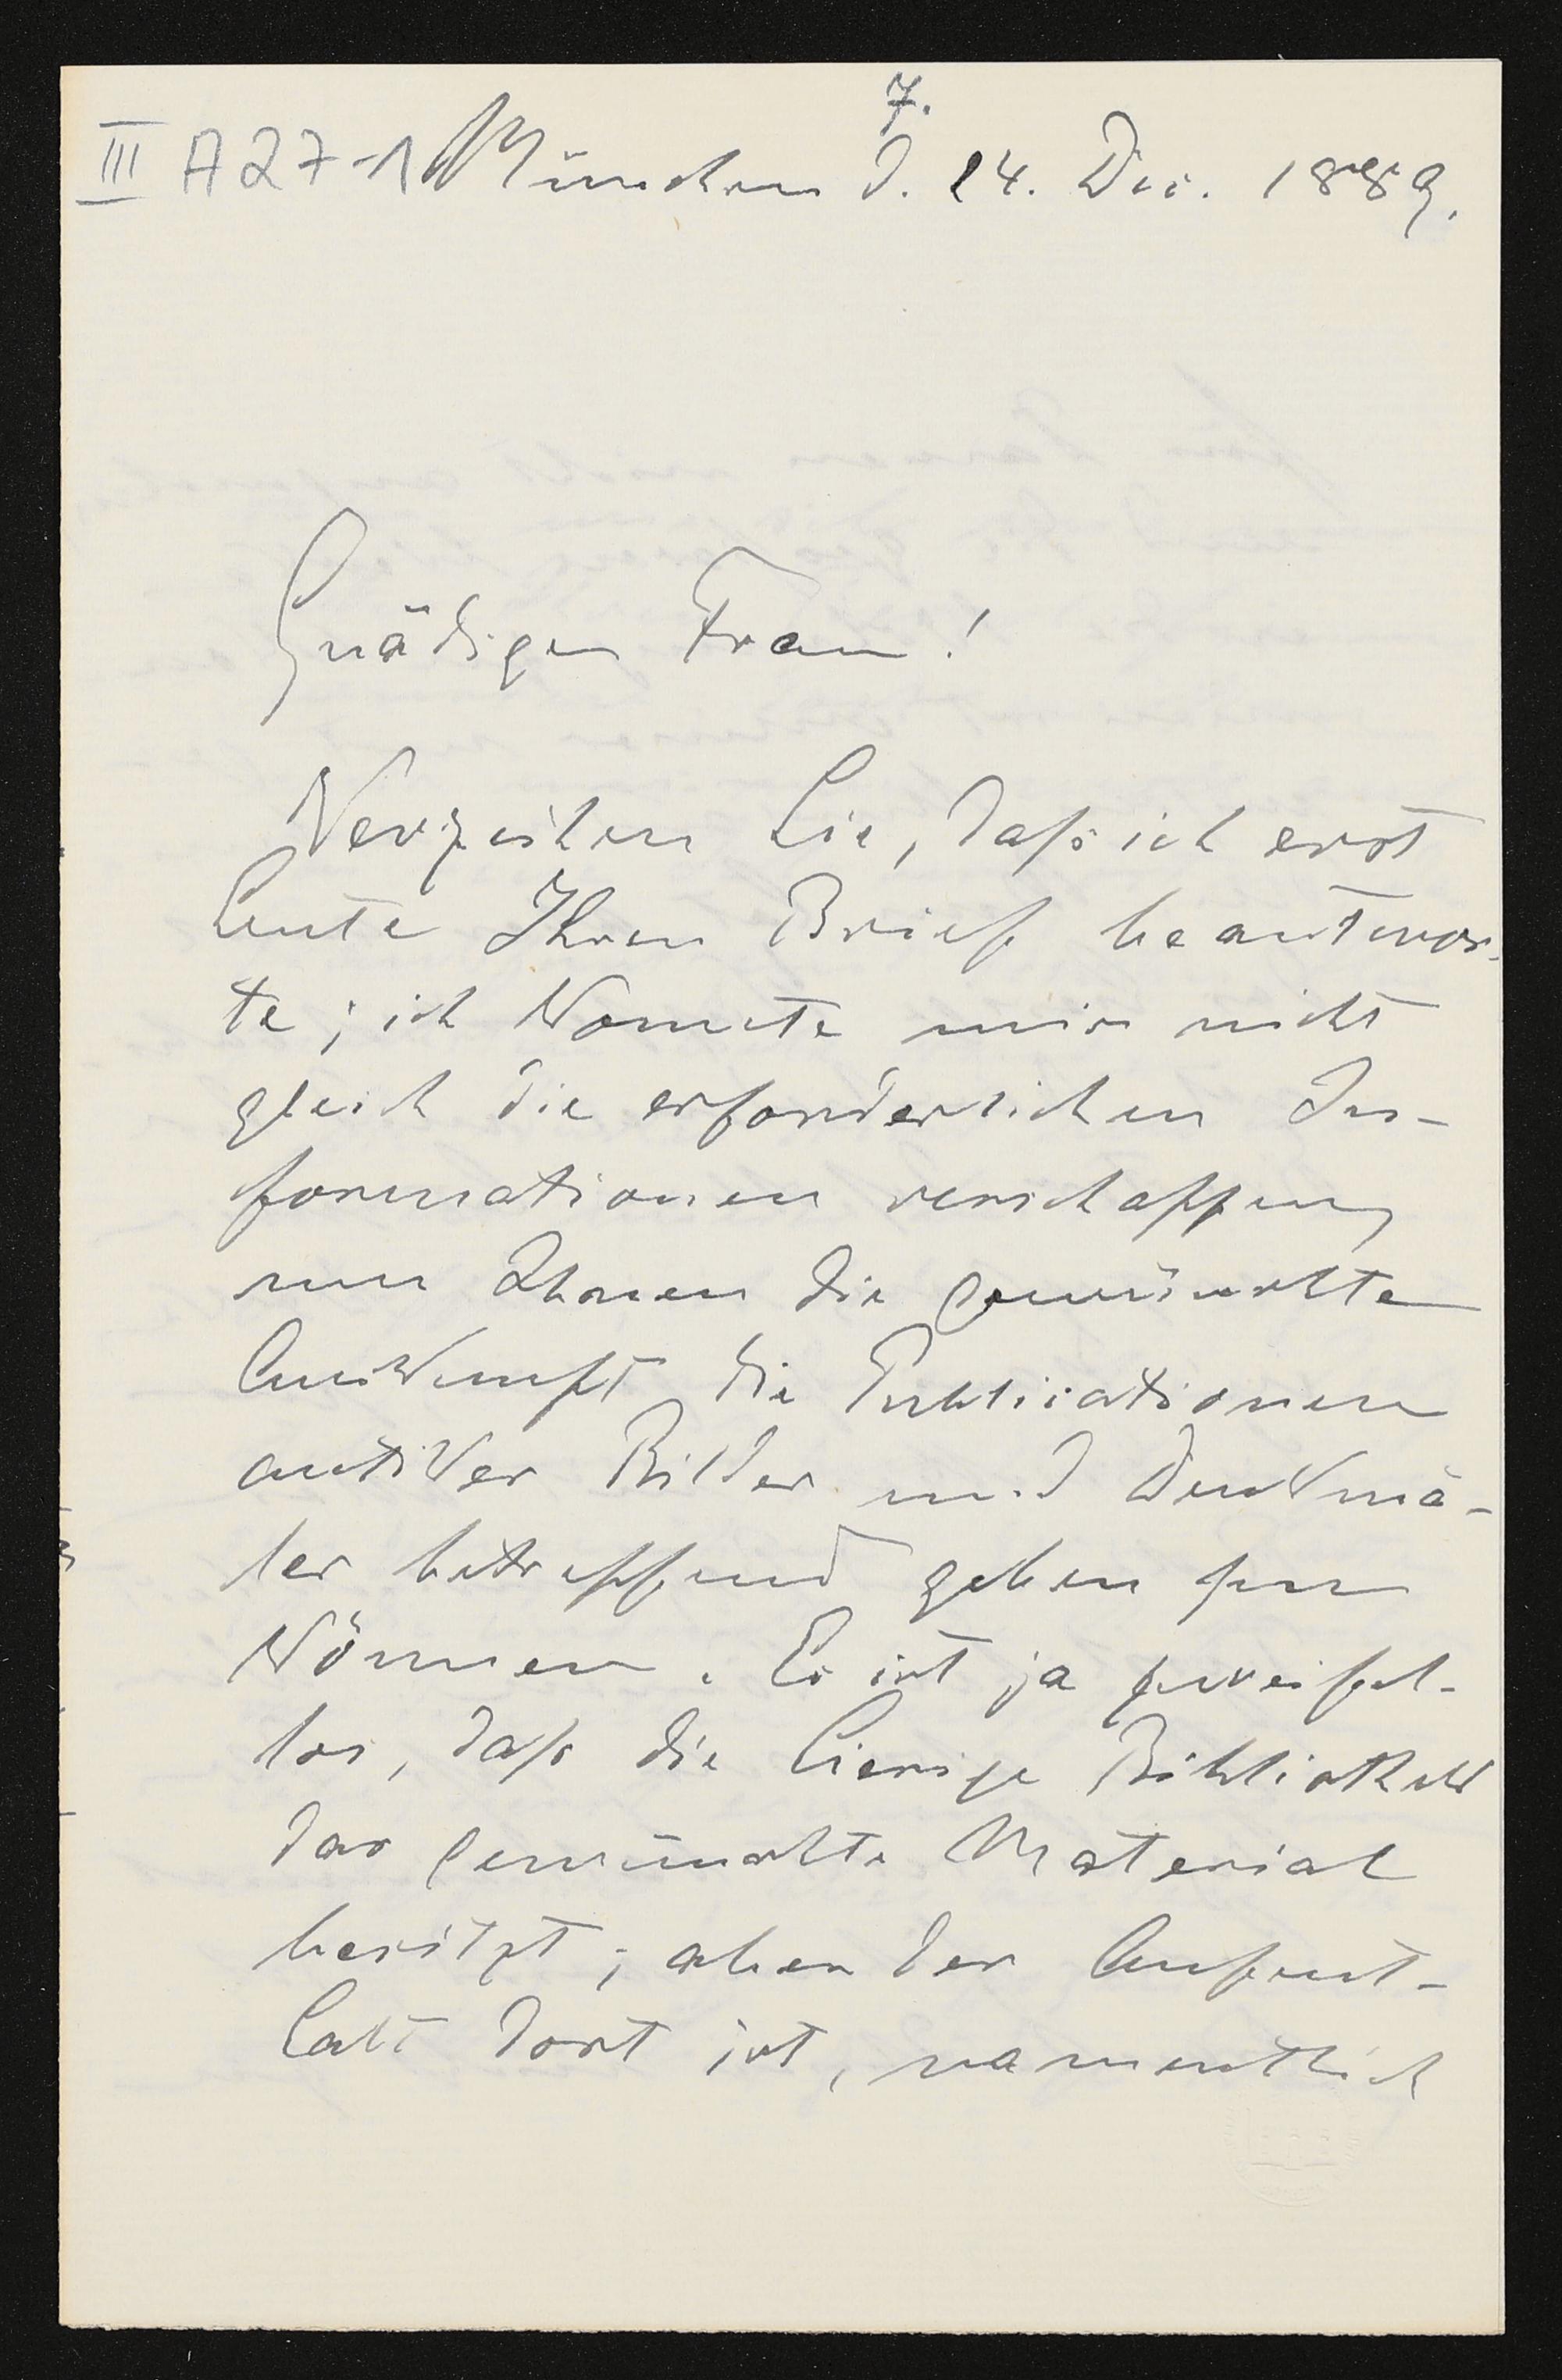 7.
III A27-1 München d. 24. Dec. 1889.
Gnädige Frau!
Verzeihen Sie, daß ich erst
heute Ihren Brief beantwor-
te; ich konnte mir nicht
gleich die erforderlichen In-
formationen verschaffen,
um Ihnen die gewünschte
Auskunft, die Publicationen
antiker Bilder und Denkmä-
ler betreffend geben zu
können. Es ist ja zweifel-
los, daß die hiesige Bibliothek
das gewünschte Material
besitzt; aber der Aufent-
halt dort ist, namentlich